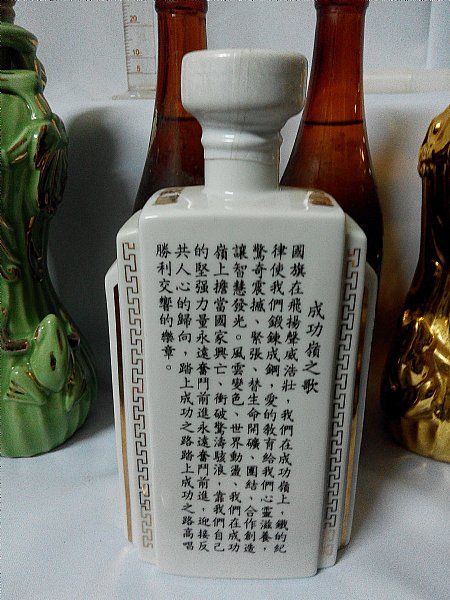 成功嶺之歌
國旗在飛揚聲威浩壯，我們在成功嶺上，鐵的紀
律使我們鍛鍊成鋼，愛的教育給我們心靈滋養，
驚奇震撼、緊張、替生命開礦、團結、合作創造
讓智慧發光。風雲變色、世界動盪、我們在成功
嶺上擔當國家興亡、衝破驚濤駭浪，靠我們自己
的堅强力量永遠奮鬥前進永遠奮鬥前進，迎接反
共人心的歸向，踏上成功之路踏上成功之路高唱
勝利交響的樂章。
20
10
5